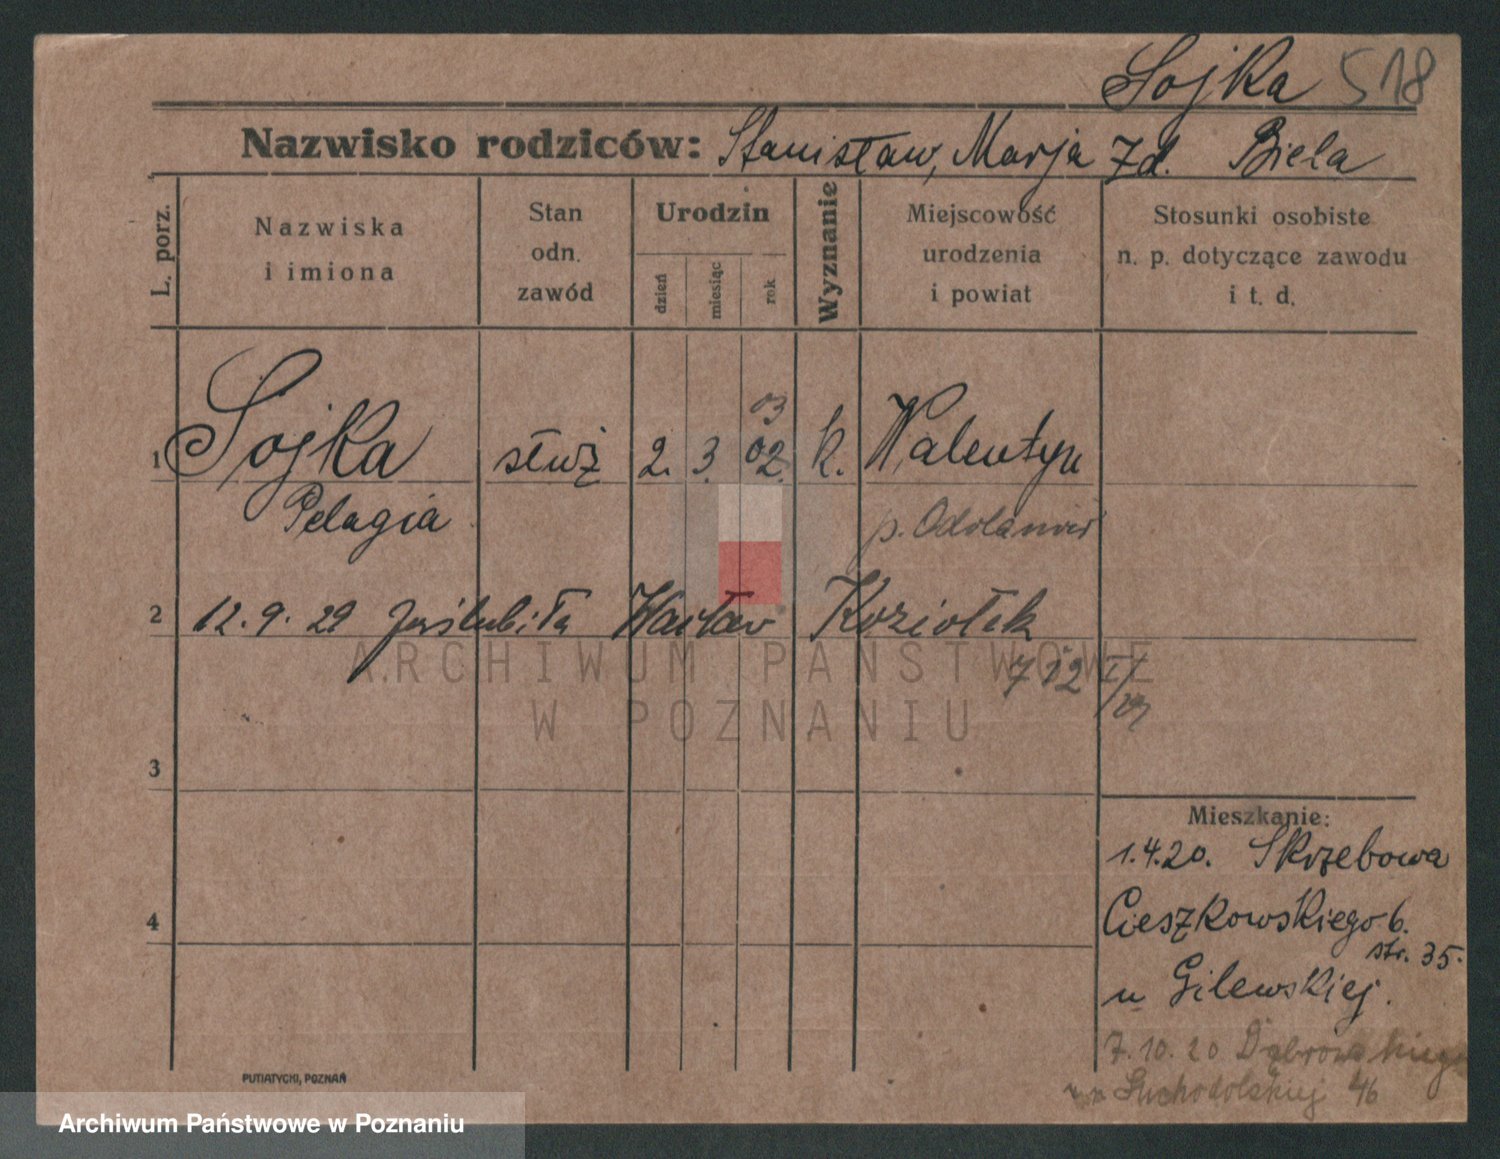 Sojka 518
Nazwisko rodziców: Stanisław, Marja zd. Biela
L. porz.
Nazwiska
i imiona
Stan
odn.
zawód
Urodzin
dzień
miesiąc
rok
Wyznanie
Miejscowość
urodzenia
i powiat
Stosunki osobiste
n. p. dotyczące zawodu
i t. d.
03
1 Sojka służ 2. 3. 02. k. Walentyn
Pelagia p. Odolanów
2 12.9.29 zaślubiła Wacław Koziołek
712
ARCHIWUM PAŃSTWOWE
W POZNANIU
3
Mieszkanie:
1.4.20. Skrzebowa
4
Cieszkowskiego 6.
str. 35.
u Gilewskiej.
7.10.20 Dąbrowskiego
Suchodolskiej 46
PUTIATYCKI, POZNAŃ
Archiwum Państwowe w Poznaniu